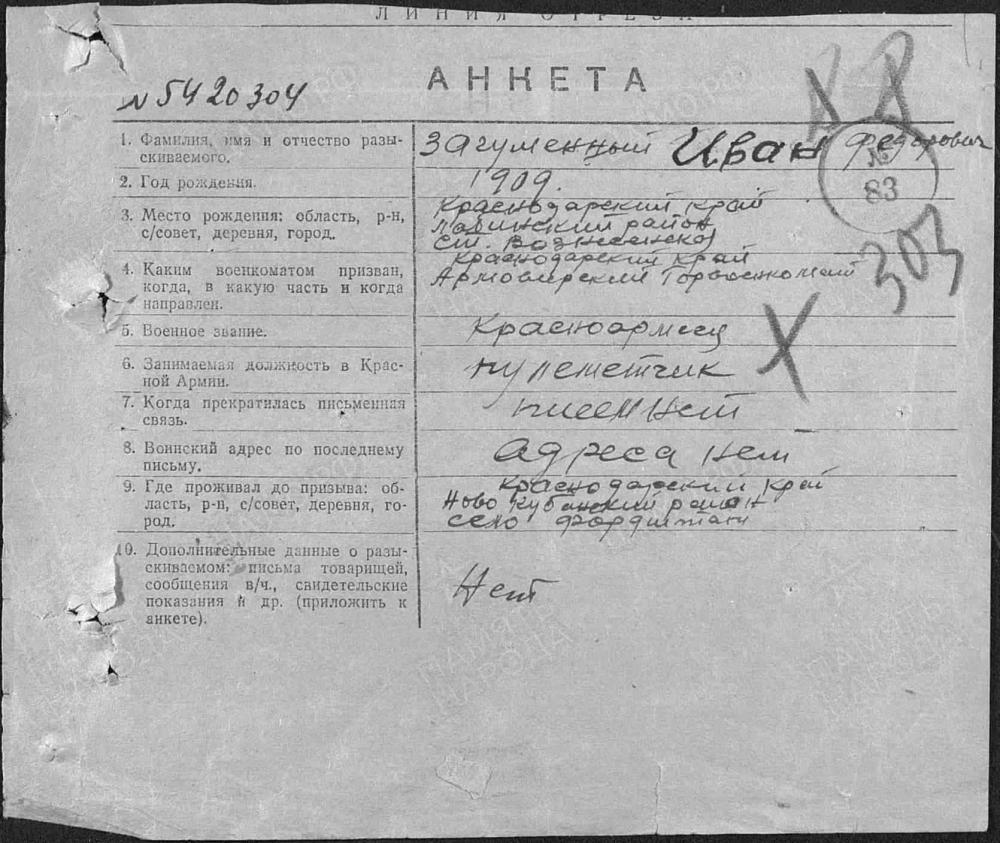 ЛИНИЯ ОТРЕЗА
АНКЕТА
N 5420304
1. Фамилия, имя и отчество разы-
скиваемого.
Загуменный Иван Федорович
2. Год рождения.
1909.
№
83
3. Место рождения: область, р-н,
с/совет, деревня, город.
Краснодарский край
Лабинский район
ст. Вознесенская
4. Каким военкоматом призван,
когда, в какую часть и когда
направлен.
Краснодарский край
Армовирский Горвоенкомат
303
5. Военное звание.
Красноармеец
6. Занимаемая должность в Крас-
ной Армии.
пулеметчик
7. Когда прекратилась письменная
связь.
писем нет
8. Воинский адрес по последнему
письму.
адреса нет
9. Где проживал до призыва: об-
ласть, р-н, с/совет, деревня, го-
род.
Краснодарский край
Ново Кубанский район
село
10. Дополнительные данные о разы-
скиваемом: письма товарищей,
сообщения в/ч., свидетельские
показания и др. (приложить к
анкете).
Нет